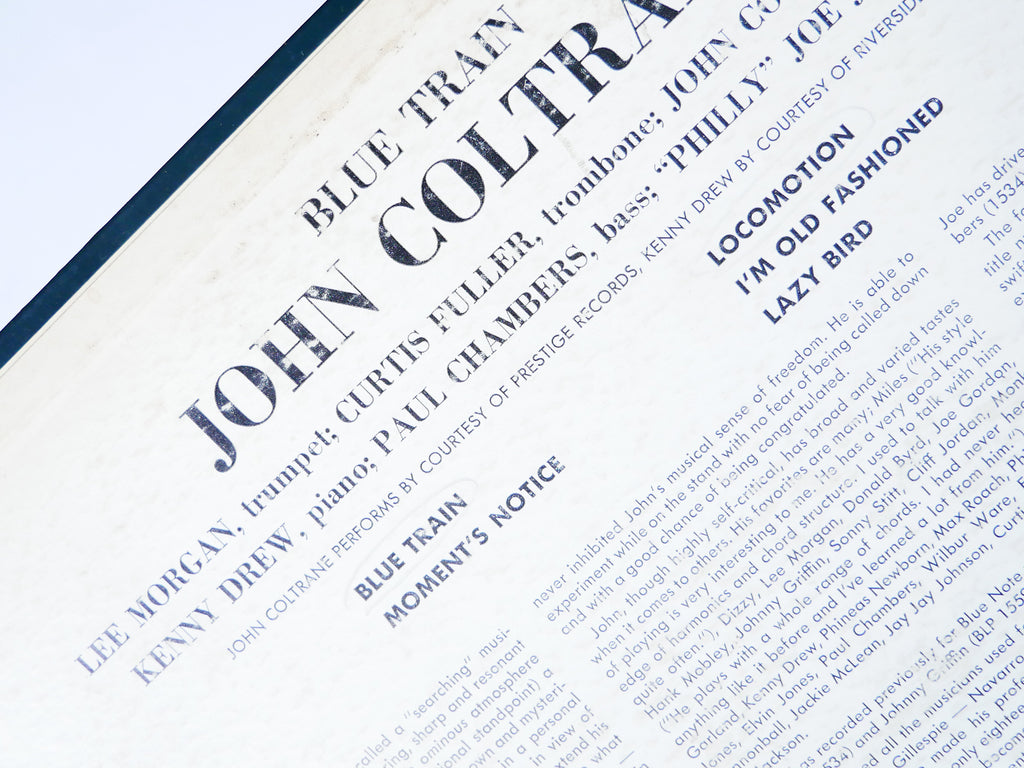 BLUE TRAIN
JOHN COLTRA
LEE MORGAN, trumpet; CURTIS FULLER, trombone; JOHN CO
KENNY DREW, piano; PAUL CHAMBERS, bass; "PHILLY" JOE
JOHN COLTRANE PERFORMS BY COURTESY OF PRESTIGE RECORDS, KENNY DREW BY COURTESY OF RIVERSIDE
BLUE TRAIN
MOMENT'S NOTICE
LOCOMOTION
I'M OLD FASHIONED
LAZY BIRD
alled a "searching" musi-
ring, sharp and resonant
ominous atmosphere
ional standpoint) a
wn and mysteri-
in a personal
view of
nd his
what —
never inhibited John's musical sense of freedom. He is able to
experiment while on the stand with no fear of being called down
and with a good chance of being congratulated.
John, though highly self-critical, has broad and varied tastes
when it comes to others. His favorites are many; Miles ("His style
of playing is very interesting to me. He has a very good knowl-
edge of harmonics and chord structure. I used to talk with him
quite often."), Dizzy, Lee Morgan, Donald Byrd, Joe Gordon,
Hank Mobley, Johnny Griffin, Sonny Stitt, Cliff Jordan, Mon
("He plays with a whole range of chords. I had never hea
anything like it before and I've learned a lot from him."
Garland, Kenny Drew, Phineas Newborn, Max Roach, Ph
Jones, Elvin Jones, Paul Chambers, Wilbur Ware, P
nonball, Jackie McLean, Jay Jay Johnson, Curti
Jackson.
as recorded previously for Blue Note
534) and Johnny Griffin (BLP 155
d all the musicians used f
Gillespie — Navarro
made his pro
only eighte
becam
Joe has drive
bers (1534)
The fa
title n
swif
e